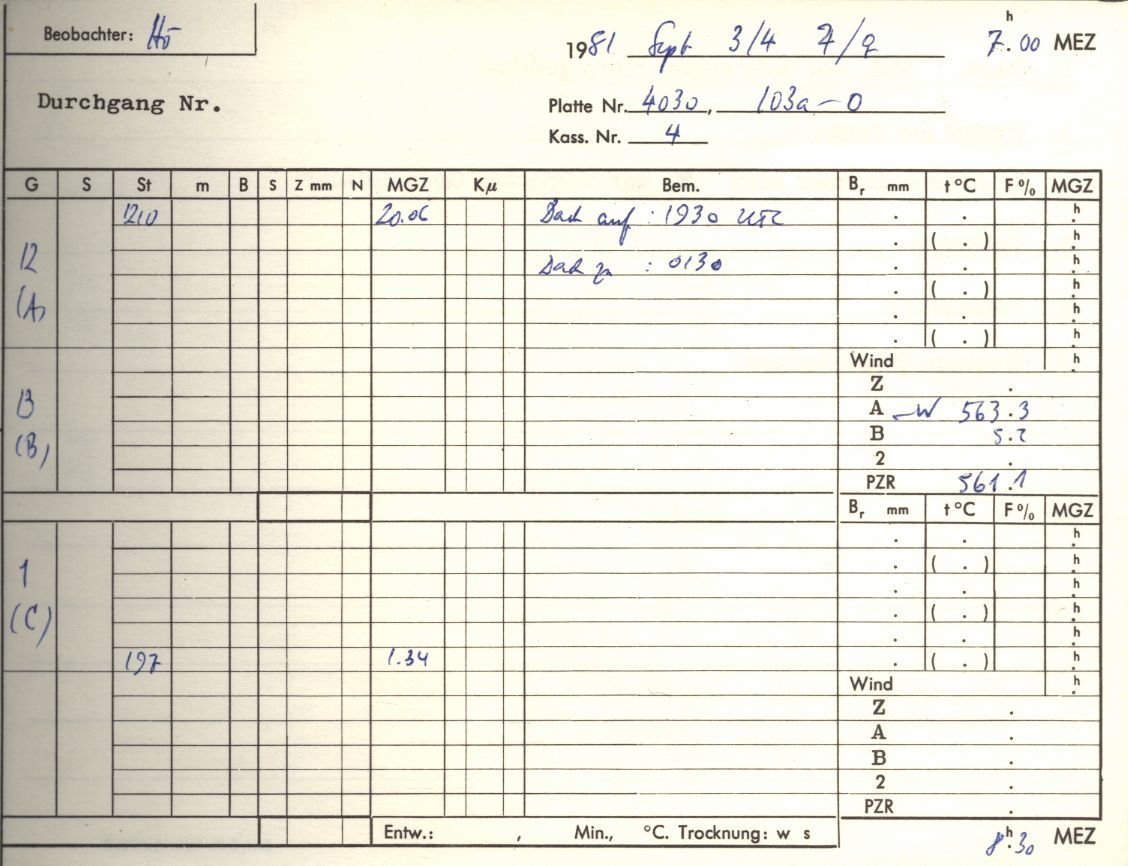 Beobachter: Hö
1981 Sept 3/4 7/9 7.ʰ00 MEZ
Durchgang Nr.
Platte Nr. 4030, 103a-O
Kass. Nr. 4
G S St m B S Z mm N MGZ Kμ Bem. Bᵣ mm t °C F % MGZ
210 20.06 Dach auf : 1930 UTC . . h.
. ( . ) h.
12 Dach zu : 0130 . . h.
. ( . ) h.
(A) . . h.
. ( . ) h.
Wind h.
Z .
13 A W 563.3
B 5.2
(B) 2 .
PZR 561.1
Bᵣ mm t °C F % MGZ
. . h.
. ( . ) h.
1 . . h.
(C) . ( . ) h.
. . h.
197 1.34 . ( . ) h.
Wind h.
Z .
A .
B .
2 .
PZR .
Entw.: , Min., °C. Trocknung: w s
8.ʰ30 MEZ